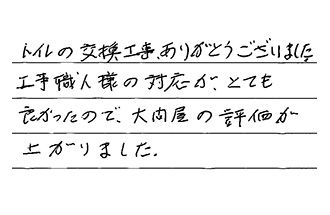 トイレの交換工事、ありがとうございました
工事職人様の対応が、とても
良かったので、大内屋の評価が
上がりました。